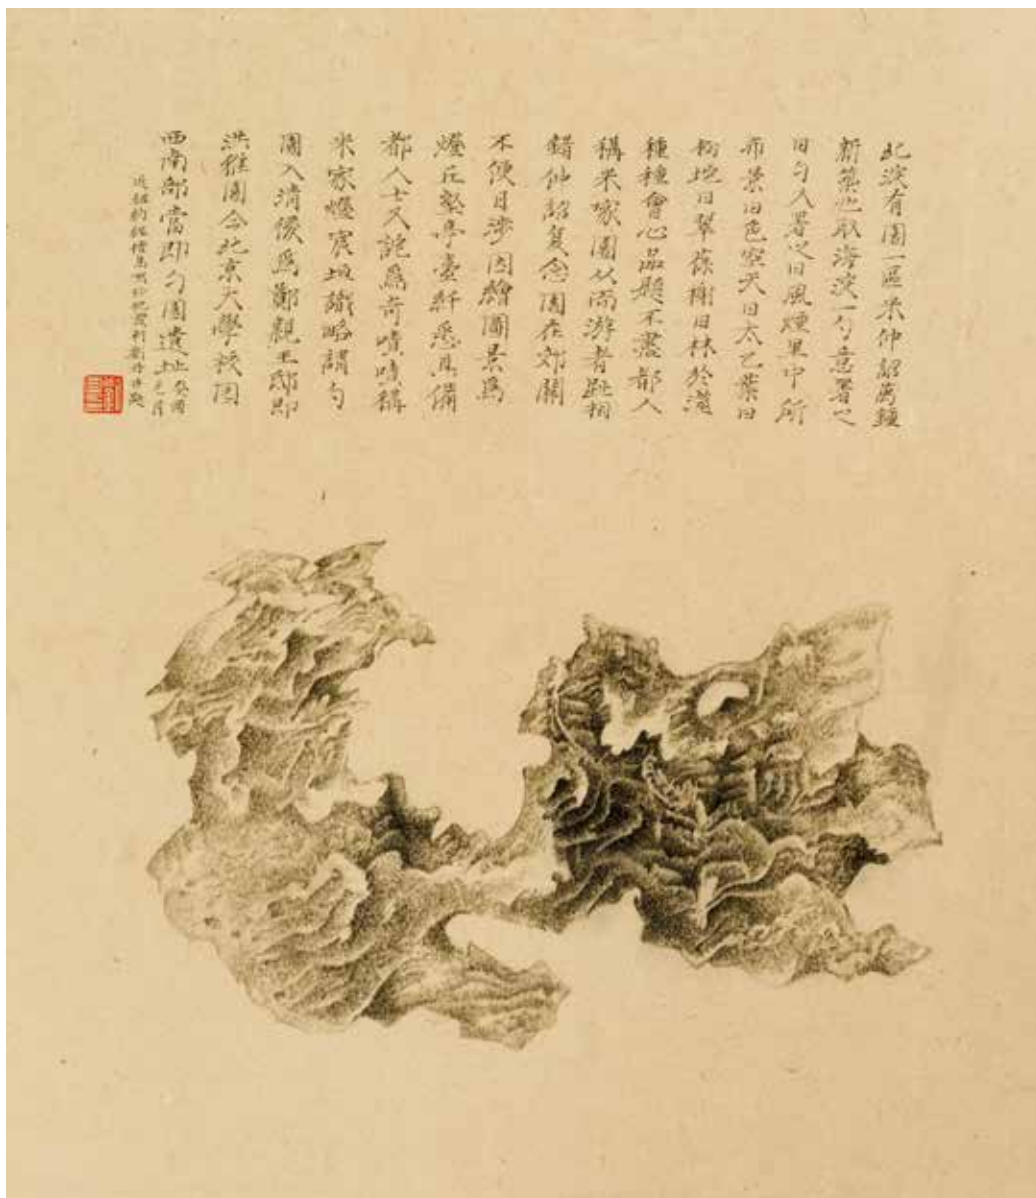 北淀有園一區米仲詔萬鐘
新築也取海淀一勺意署之
曰勺又署之曰風煙里中所
布景曰色空天曰太乙葉曰
松坨曰翠葆榭曰林於澨
種種會心品題不盡都人
稱米家園從而游者趾相
錯仲詔復念園在郊關
不便日涉因繪園景為
燈丘壑亭臺纖悉具備
都人士又詫為奇嘖嘖稱
米家燈宸垣識略謂勺
園入清後為鄭親王邸即
洪雅園今北京大學校園
西南部當即勺園遺址 癸酉
劉丹并題